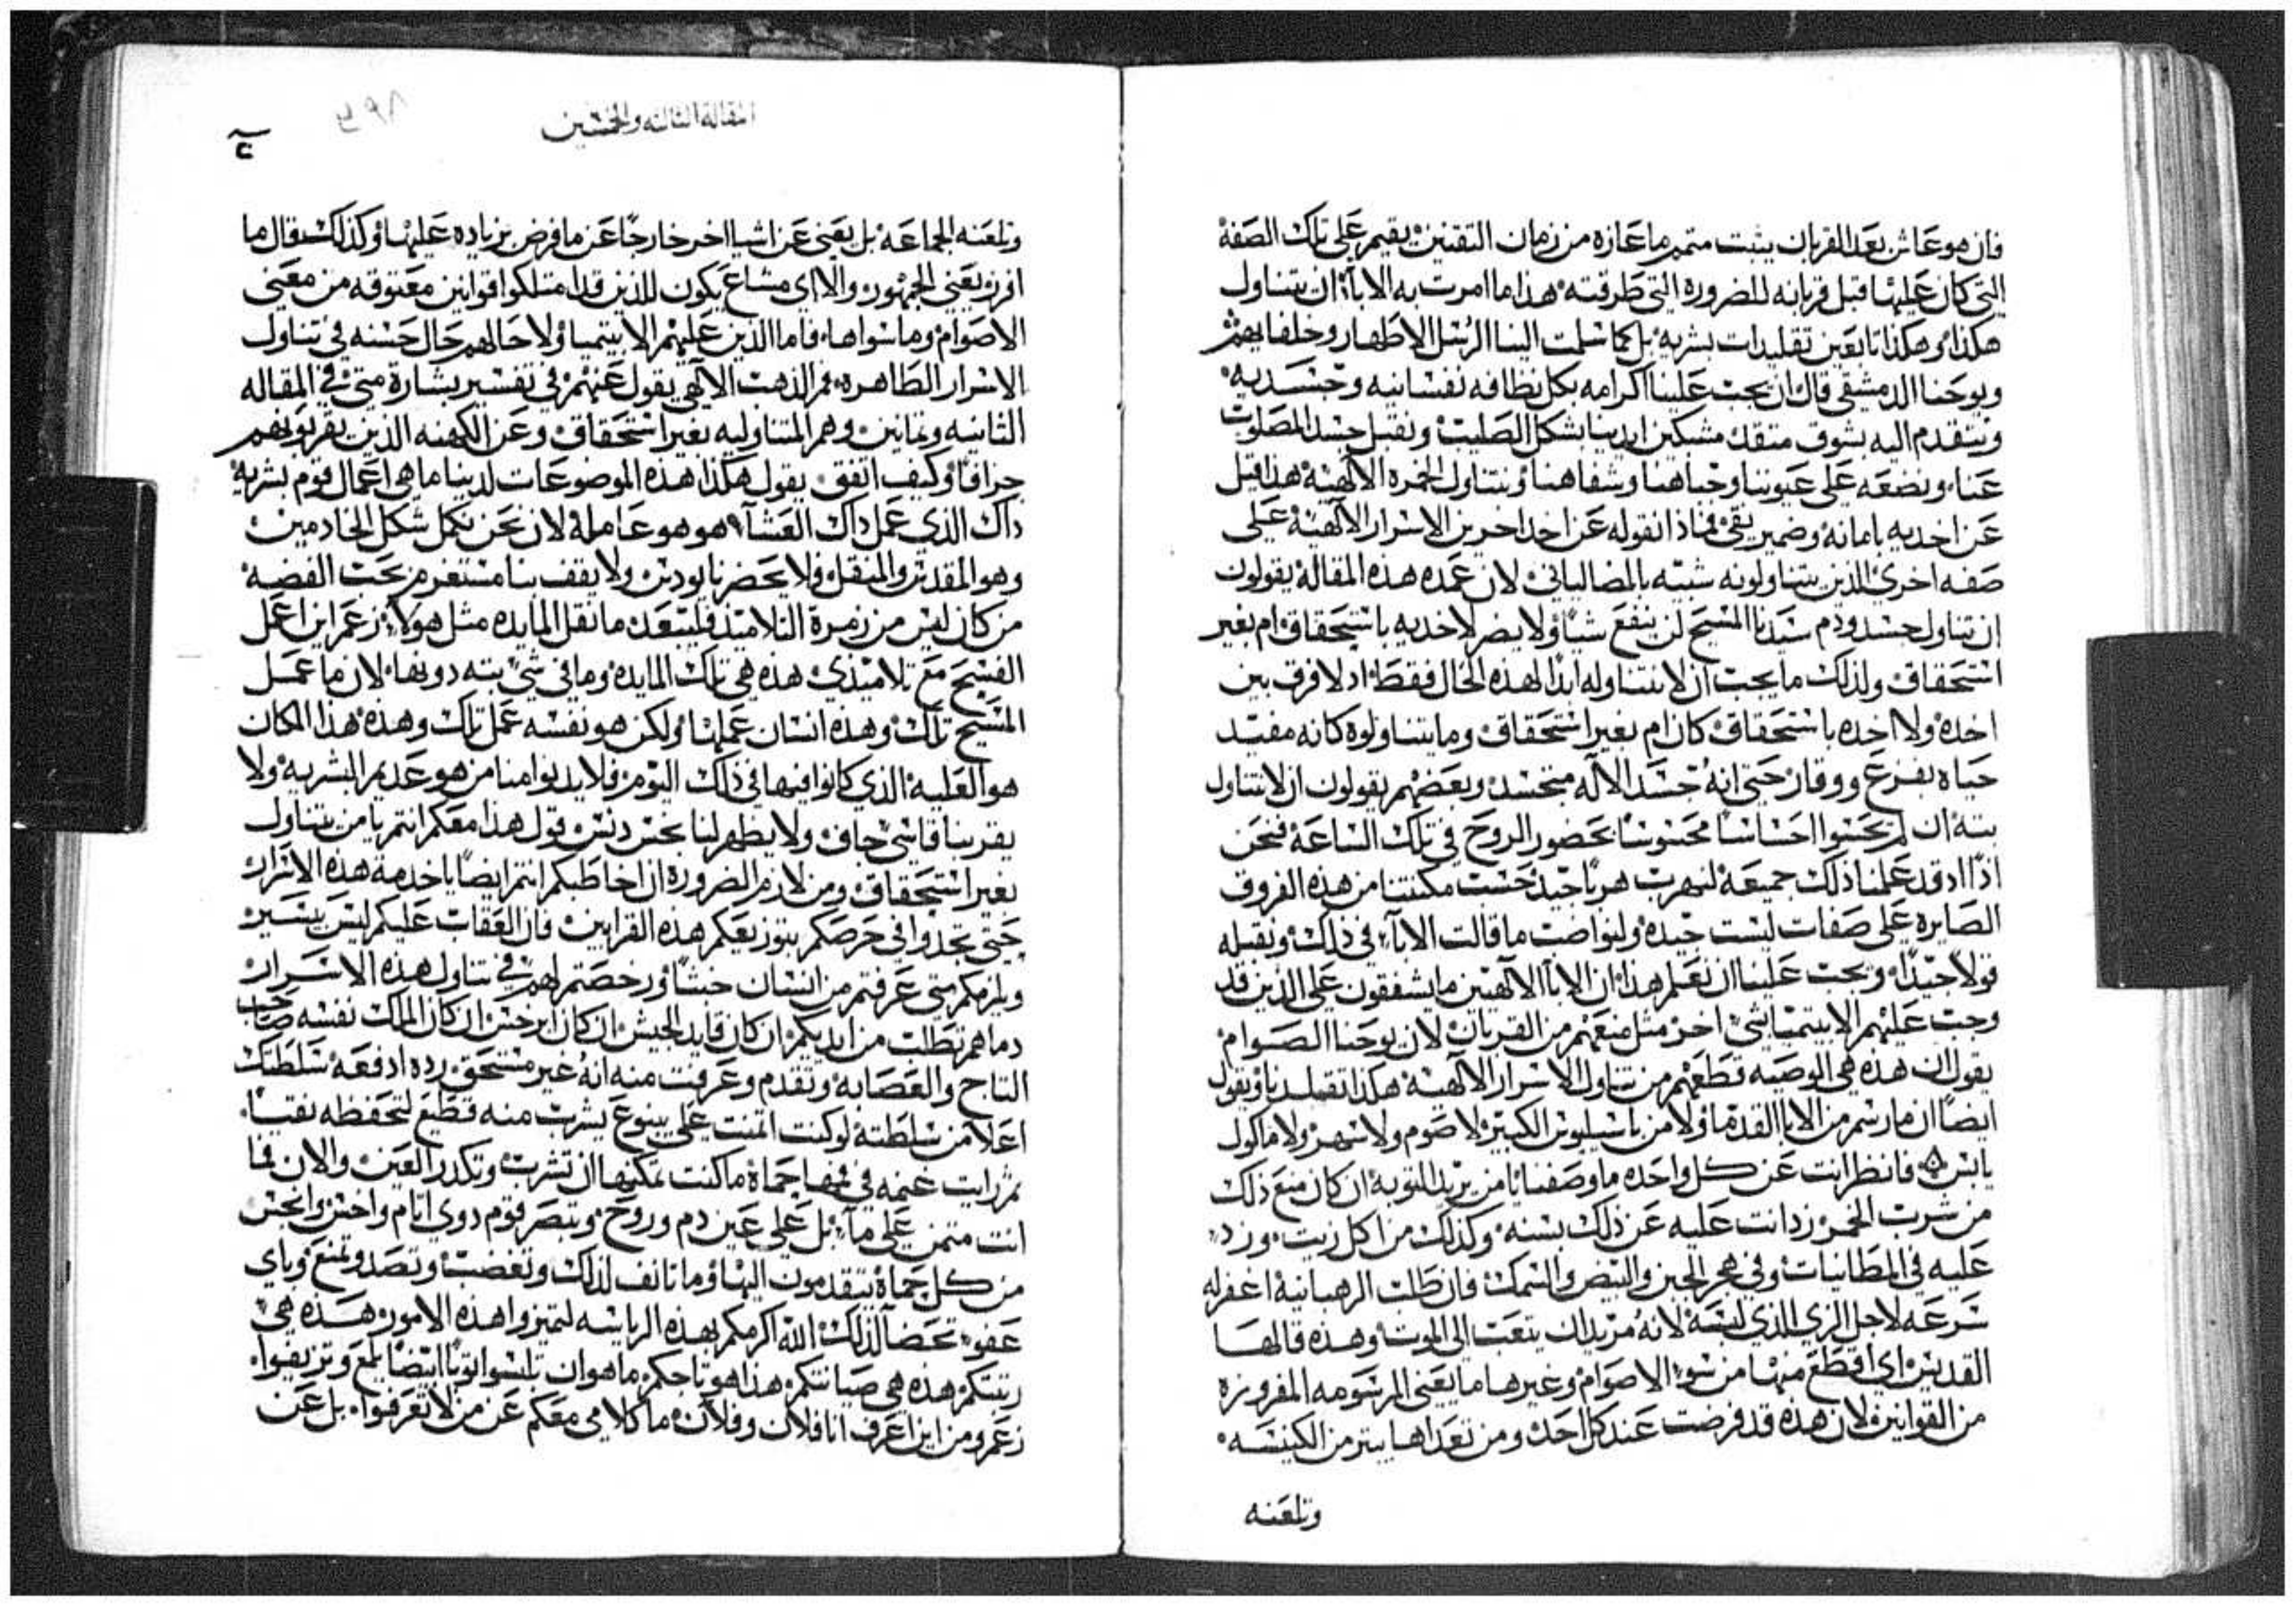 فان هو عاش بعد القربان يثبت متمم ما عازه من زمان التقنين يقيم على تلك الصفة
التي كان عليها قبل قربانه للضرورة التي طرقته هذا ما امرت به الاباء ان يتناول
هكذا وهكذا تابعين تقليدات بشريه بل كما سلمت الينا الرسل الاطهار وخلفايهم
ويوحنا الدمشقي قال ان يجب علينا اكرامه بكل نظافه نفسانيه وجسديه
ونتقدم اليه بشوق متقد مشبكين ايدينا بشكل الصليب ونقبل جسد المصلوب
عنا ونضعه على عيوننا وجباهنا وشفاهنا ونتناول الجمره الالهية هذا قيل
عن اخديه بامانه وضمير نقي فماذا نقوله عن اخد اخرين الاسرار الالهية على
صفه اخرى الذين يتناولونه شبيه بالمضاليانى لان عمده هذه المقالة يقولون
ان تناول جسد ودم سيدنا المسيح لن ينفع شيا ولا يضر لاخديه باستحقاق ام بغير
استحقاق ولذلك ما يجب ان لا نتناوله ابدا لهذه الحال فقط اد لا فرق بين
اخده ولا اخده باستحقاق كان ام بغير استحقاق وما يتناولوه كانه مفيد
حياه بفزع ووقار حتى انه جسد الاله متجسد وبعضهم يقولون ان لا نتناول
بته ان لم يحسوا احساسا محسوسا بحضور الروح في تلك الساعة فنحن
اذا اد قد علمنا ذلك جميعه لنهرب هربا جيد حسب مكنتنا من هذه الفروق
الصايره على صفات ليست جيده ولنواضب ما قالت الاباء في ذلك ونقبله
قولا جيدا ويجب علينا ان نعلم هذا ان الابا الالهيين ما يشفقون على الذين قد
وجب عليهم الابيتميا شي اخر مثل منعهم من القربان لان يوحنا الصوام
يقول ان هذه هي الوصيه قطعهم من تناول الاسرار الالهية هكذا تقلدنا ويقول
ايضا ان ما رسم من الابا القدما ولا من باسيليوس الكبير لا صوم ولا سهر ولا ماكول
يابس فانظر انت عن كل واحده ما وصفنا يا من يريد التوبة ان كان منع ذلك
من شرب الخمر زد انت عليه عن ذلك بسنه وكذلك من اكل زيت وزد
عليه في المطانيات وفي هجر الجبن والبيض والسمك فان طلب الرهبانية اغفر له
سرعه لاجل الزي الذي لبسه لانه مريدا ان يتعب الى الموت وهذه قالها
القديس اي اقطع منها من سوى الاصوام وغيرها ما يعنى المرسومه المفروزة
من القوانين لان هذه قد فرضت عند كل احد ومن تعداها يبتر من الكنيسه
وتلعنه
المقالة الثالثه والخمسين
٤٩٨
وتلعنه الجماعه بل يعني عن اشيا اخر خارجا عن ما فرض بزياده عليها وكذلك قال ما
افرز يعني الجمهور والا اي مشاع يكون للذين قد امتلكوا قوانين معتوقه من معنى
الاصوام وما سواها فاما الذين عليهم الابيتميا ولا حالهم حال حسنه في تناول
الاسرار الطاهره فم الذهب الالهي يقول عنهم في تفسير بشارة متى في المقاله
الثانيه وثمانين وهم المتناوليه بغير استحقاق وعن الكهنه الذين يقربونهم
جزافا وكيف اتفق يقول هكذا هذه الموضوعات لدينا ما هي اعمال قوم بشرية
داك الذي عمل داك العشاء هو هو عامله لان نحن نكمل شكل الخادمين
وهو المقدس والمنقل فلا يحضرنا يودس ولا يقف بنا مستغرم بحب الفضه
من كان ليس من زمرة التلاميد فليبعد ما نقل المايده مثل هولاء زعم اين اعمل
الفسح مع تلاميدي هذه هي تلك المايدة وما في شي بته دونها لان ما عمل
المسيح تلك وهذه انسان عملها ولكن هو نفسه عمل تلك وهذه هذا المكان
هو العليه الذي كانوا فيها في ذلك اليوم فلا يدنوا منا من هو عديم البشرية ولا
يقربنا قاسي جاف ولا يظهر لنا نجس دنس قول هذا معكم انتم يا من يتناول
بغير استحقاق ومن لازم الضرورة ان اخاطبكم انتم ايضا يا خدمة هذه الاسرار
حتى تجدوا في حرصكم بتوزيعكم هذه القرابين فان العقاب عليكم ليس بيسير
ويلزمكم متى عرفتم من انسان خبثا ورخصتم لهم في تناول هذه الاسرار
دماهم تطلب من ايديكم ان كان قايد الجيش ان كان ابرخس ان كان الملك نفسه صاحب
التاج والعصابه وتقدم وعرفت منه انه غير مستحق رده ادفعه سلطتك
اعلا من سلطته لو كنت اتمنت على ينبوع يشرب منه قطيع لتحفظه نقيا
ثم رايت غنمه في فمها حماة ما كنت تمكنها ان تشرب وتكدر العين والان فما
انت متمن على ماء بل على عين دم وروح وتبصر قوم دوي اثام واخس وانجس
من كل حماة يتقدمون اليها وما تانف لذلك وتغضب وتصد وتمنع وباي
عفو تحضا لذلك الله اكرمكم بهذه الرياسه لتميزوا هذه الامور هذه هي
رتبتكم هذه هي صيانتكم هذا هو تاجكم ما هو ان تلبسوا ثوبا ابيضا يلمع وتزيفوا
زعم ومن اين اعرف انا فلان وفلان ما كلامي معكم عن من لا تعرفوا بل عن